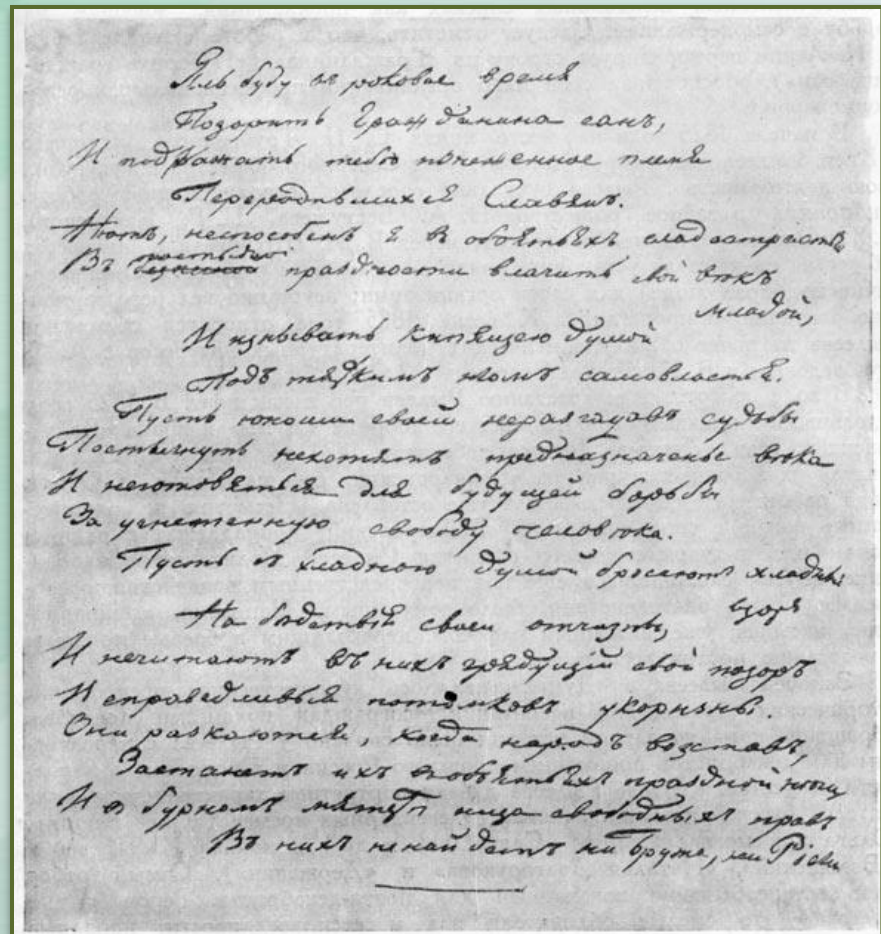 Яль буду въ роковое время
Позорить Гражданина санъ,
И подражать тебѣ изнѣженное племя
Переродившихся Славянъ.
Нѣтъ, неспособенъ я въ объятьяхъ сладострастья
Въ постыдной праздности влачить свой вѣкъ
младой,
И изнывать кипящею душой
Подъ тяжкимъ игомъ самовластья.
Пусть юноши своей неразгадавъ судьбы
Постигнуть нехотятъ предназначенье вѣка
И неготовятъся для будущей борьбы
За угнетенную свободу человѣка.
Пусть съ хладною душой бросаютъ хладный
взоръ
На бѣдствія своей отчизны,
И нечитаютъ въ нихъ грядущій свой позоръ
И справедливыя потомковъ укоризны.
Они раскаются, когда народъ возставъ,
Застанетъ ихъ въ объятьяхъ праздной нѣги
И въ бурномъ мятежѣ ища свободныхъ правъ
Въ нихъ ненайдетъ ни Брута, ни Ріеги